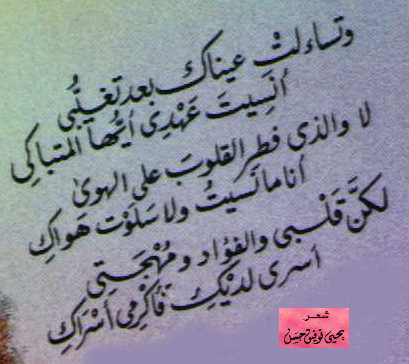 وتساءلتْ عيناك بعد تغيّبي
أنسِيتَ عَهْدِى أيُّها المتباكِي
لا والذي فطر القلوبَ على الهوىٰ
أنا ما نسيتُ ولا سَلَوْت هَواكِ
لكنَّ قَلْبي والفؤاد ومُهْجَتي
أسرى لديْكِ فأكْرِمي أسْراكِ
شعر
يحيى توفيق حسن